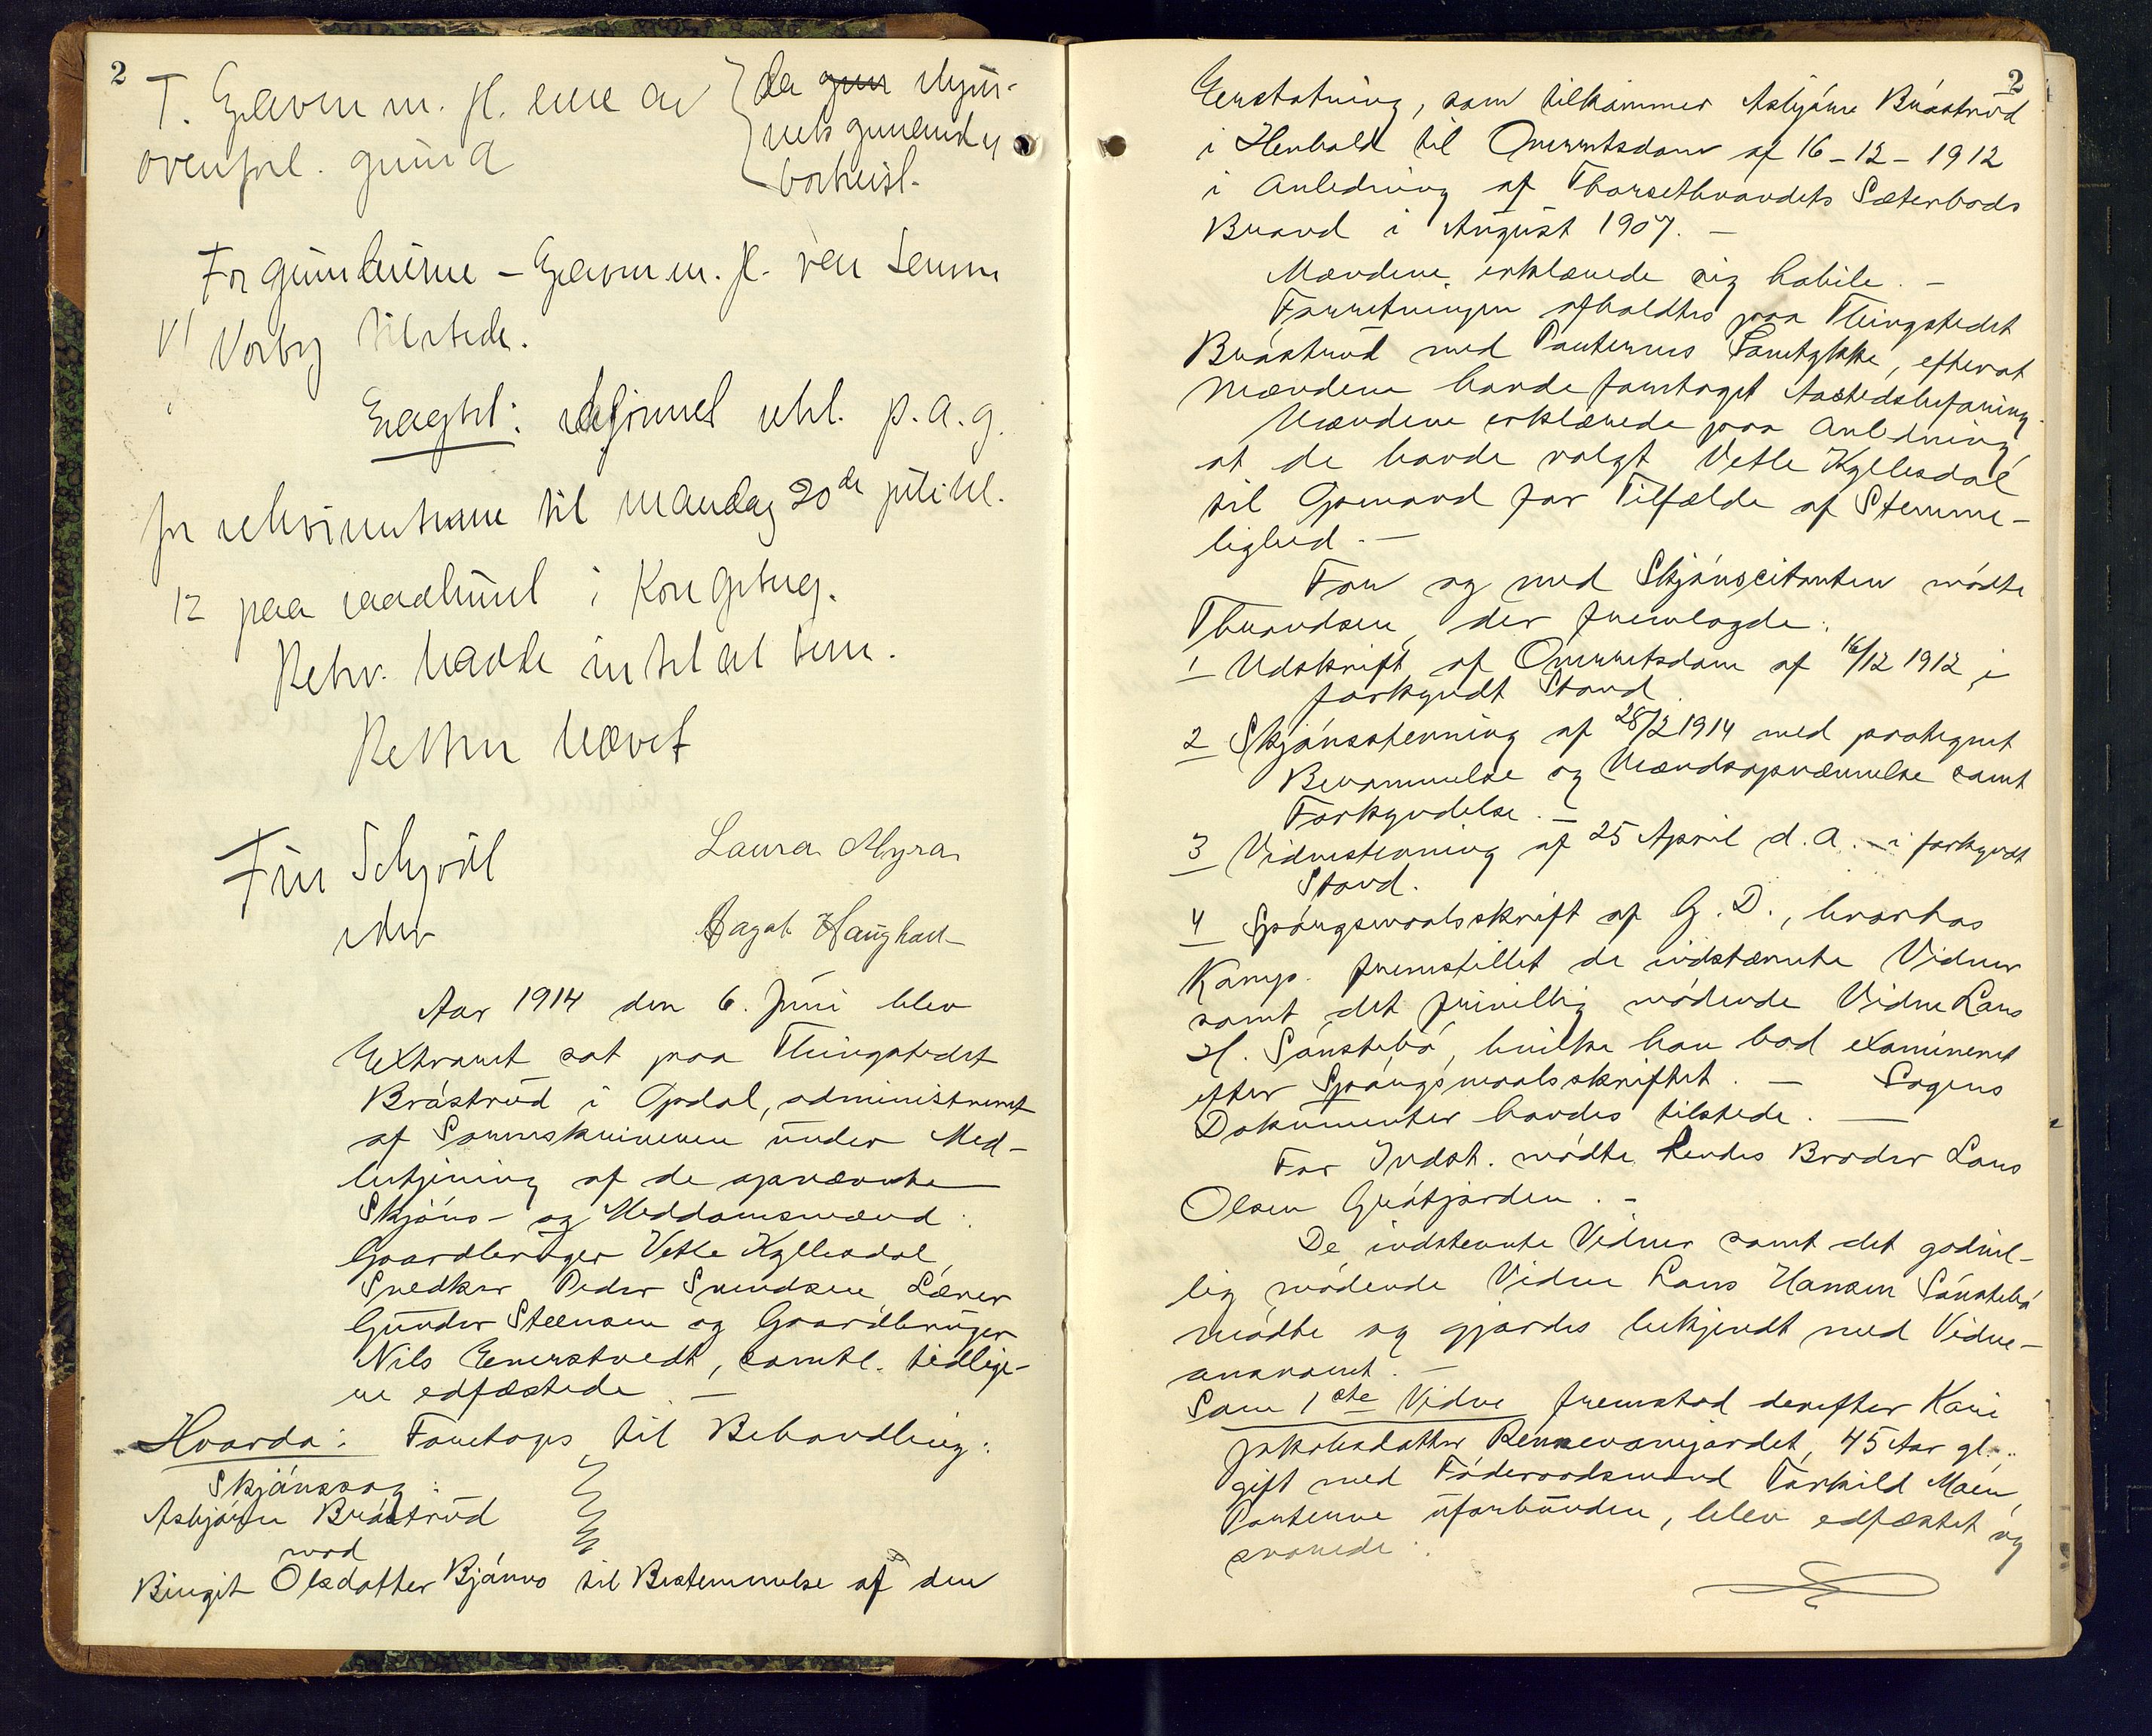 2
T. m. fl. eiere av
ovenfor. grund
da skjøn-
nets
bortreist.
For m. fl. ved
V/ Vorby tilstede.
Eragtet: utl. p. a. g.
for til mandag 20de juli kl.
12 paa raadhuset i Kongsberg.
Retsv. havde intet at bem.
Retten hævet
Laura Myra
Aagot Haugholt
Aar 1914 den 6. Juni blev
Extraret sat paa Thingstedet
Bråstrud i Opdal, administreret
af Sorenskriveren under Med-
betjening af de opnævnte
Skjöns- og Meddomsmænd:
Gaardbruger Vetle Kyllesdal,
Snedker Peder Svendsen Lærer
Gunder Steensen og Gaardbruger
Nils Enerstvedt, samtl. tidlige-
re edfæstede. —
Hvorda: Foretoges til Behandling:
Skjönssag:
Asbjörn Bråstrud
mod
Birgit Olsdatter Bjönno til Bestemmelse af den
2
Erstatning, som tilkommer Asbjörn Bråstrud
i Henhold til Overretsdom af 16-12-1912
i Anledning af Thorsethvandets Sæterbods
Brand i August 1907. —
Mændene erklærede sig habile. —
Forretningen afholdtes paa Thingstedet
Bråstrud med Parternes Samtykke, efterat
Mændene havde foretaget Aastedsbefaring.
Mændene erklærede paa Anledning
at de havde valgt Vetle Kyllesdal
til Opmand for Tilfælde af Stemme-
lighed. —
For og med Skjönscitanten mödte
Throndsen, der fremlagde:
1 Udskrift af Overretsdom af 16/12 1912 i
forkyndt Stand.
2 Skjönsstevning af 28/2 1914 med paategnet
Berammelse og Mændsopnævnelse samt
Forkyndelse. —
3 Vidnestevning af 25 April d. A. i forkyndt
Stand.
4 Spörgsmaalsskrift af G. D., hvorhos
Komp. fremstillet de indstævnte Vidner
samt det frivillig mödende Vidne Lars
H. Sönstebö, hvilke han bad examineret
efter Spörgsmaalsskriftet. — Sagens
Dokumenter havdes tilstede. —
For Indst. mödte hendes Broder Lars
Olsen Gråtjorden. —
De indstevnte Vidner samt det godvil-
lig mödende Vidne Lars Hansen Sönstebö
mödte og gjordes bekjendt med Vidne-
ansvaret. —
Som 1ste Vidne fremstod derefter Kari
Jakobsdatter 45 Aar gl.,
gift med Föderaadsmand Torkild Moen,
Parterne uforbunden, blev edfæstet og
svarede: